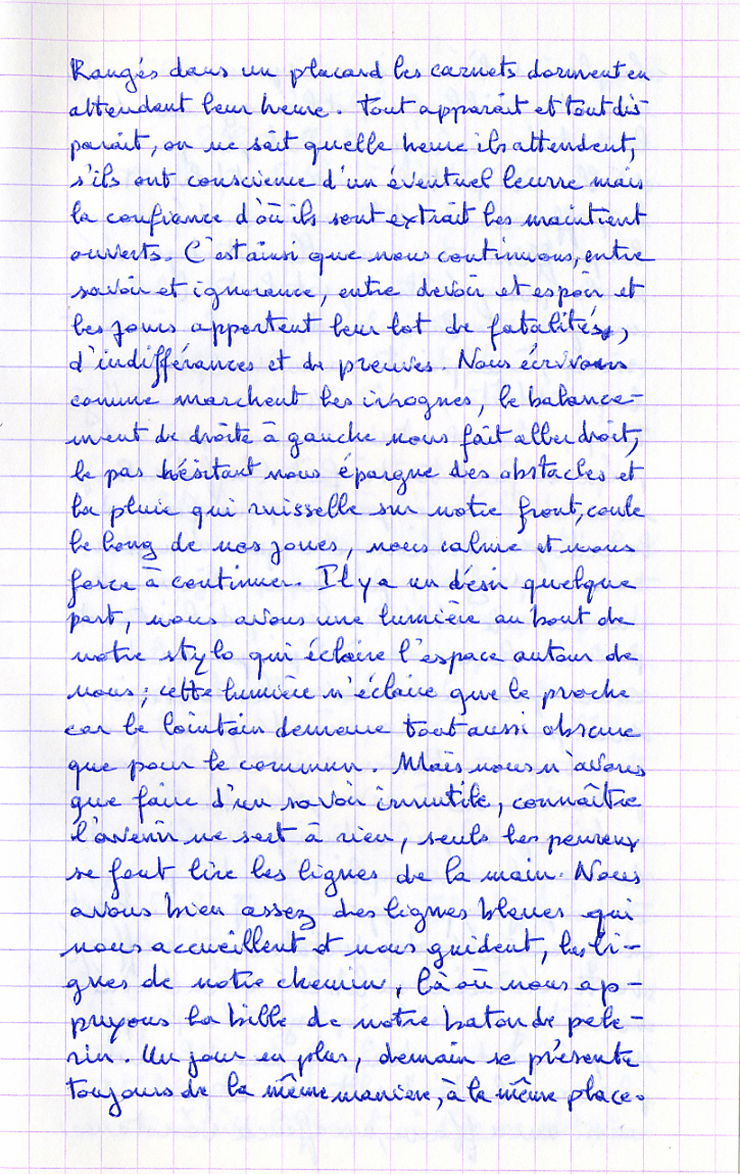 Rangés dans un placard les carnets dorment en
attendant leur heure. Tout apparait et tout dis
parait, on ne sait quelle heure ils attendent,
s'ils ont conscience d'un éventuel leurre mais
la confiance d'où ils sont extrait les maintient
ouverts. C'est ainsi que nous continuons, entre
savoir et ignorance, entre devoir et espoir et
les jours apportent leur lot de fatalités,
d'indifférances et de preuves. Nous écrivons
comme marchent les ivrognes, le balance-
ment de droite à gauche nous fait aller droit,
le pas hésitant nous épargne des obstacles et
la pluie qui ruisselle sur notre front, coule
le long de nos joues, nous calme et nous
force à continuer. Il y a un désir quelque
part, nous avons une lumière au bout de
notre stylo qui éclaire l'espace autour de
nous ; cette lumière n'éclaire que le proche
car le lointain demeure tout aussi obscure
que pour le commun. Mais nous n'avons
que faire d'un savoir innutile, connaître
l'avenir ne sert à rien, seuls les peureux
se font lire les lignes de la main. Nous
avons bien assez des lignes bleues qui
nous accueillent et nous guident, les li-
gnes de notre chemin, là où nous ap-
puyons la bille de notre baton de pele-
rin. Un jour en plus, demain se présente
toujours de la même manière, à la même place.